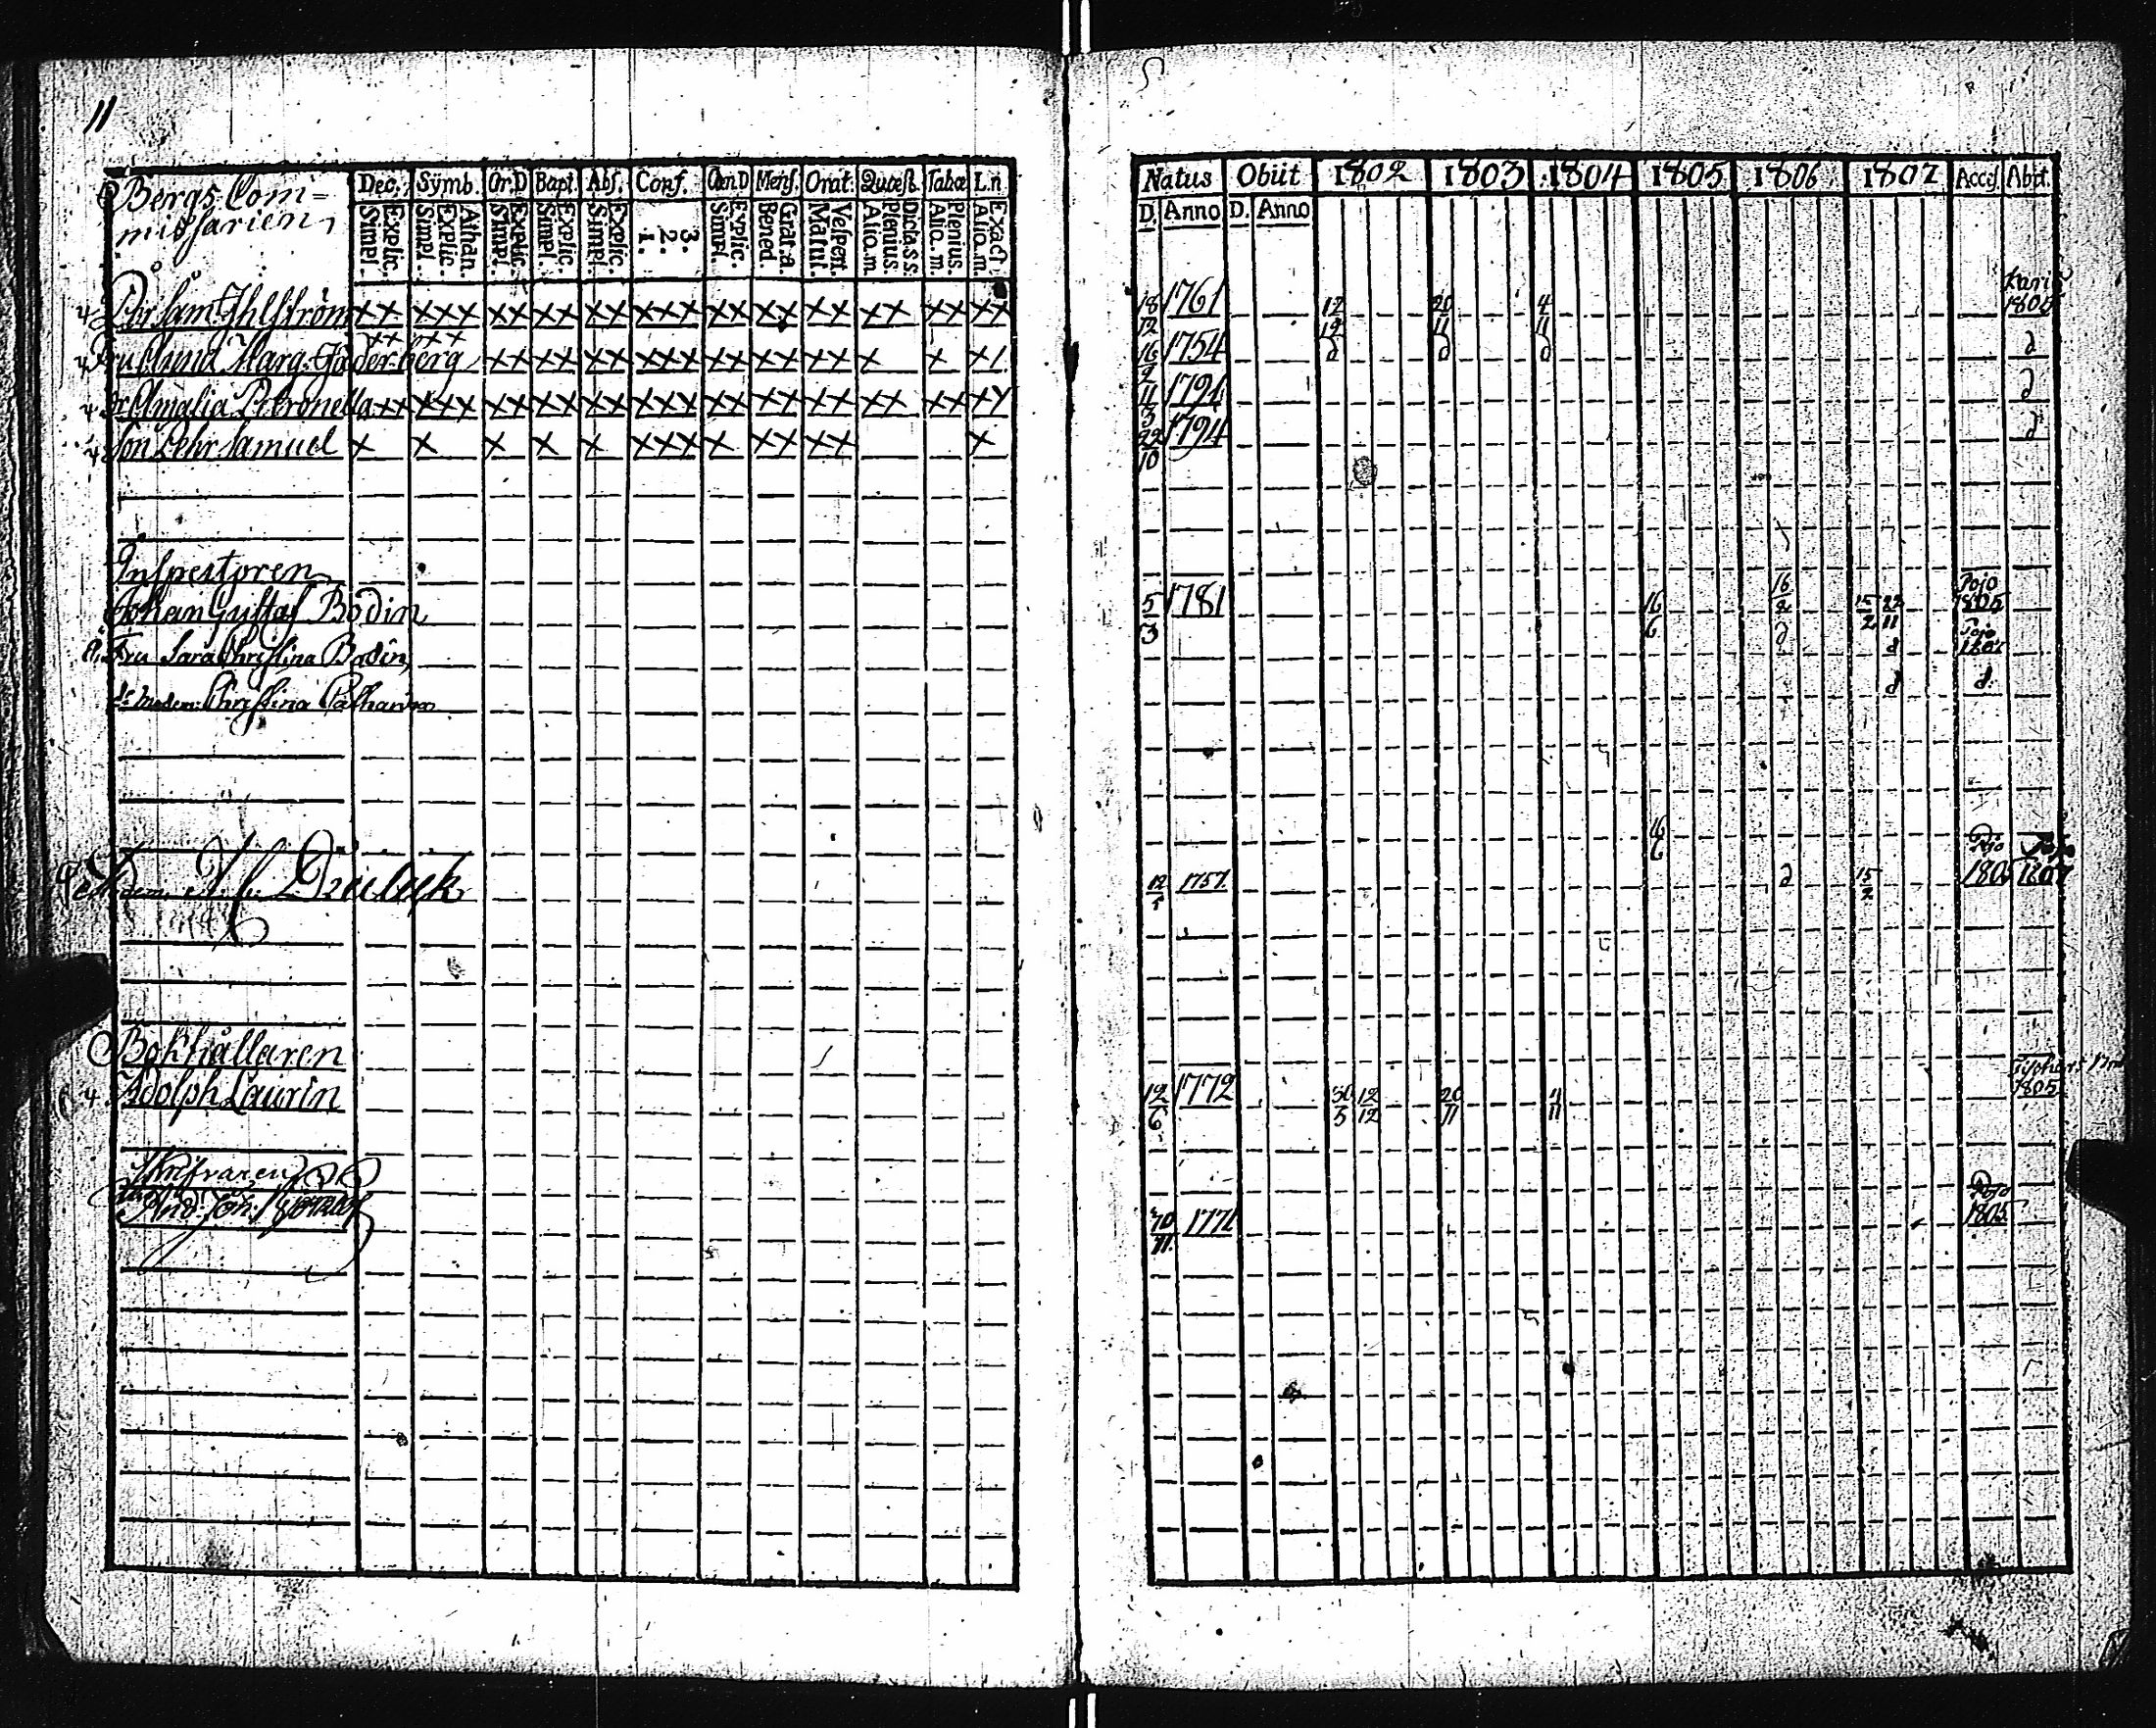 11
Bergs Com=
missarien
Dec. Symb. Or.D Bapt. Abs. Conf. Cœn.D Mens. Orat. Quæst. Tabæ L.n
Explic. Simpl. Athan. Explic. Simpl. Explic. Simpl. Explic. Simpl. Explic. Simpl. 3. 2. 1. Explic. Simpl. Grat.a. Bened. Vespert. Matut. Dicta.s.s. Plenius. Aliq.m. Plenius. Aliq.m. Exact. Aliq.m.
Natus Obiit 1802 1803 1804 1805 1806 1807 Acces. Abit.
D. Anno D. Anno
4 Pehr Sam. Ihlström xx xxx xx xx xx xxx xx xx xx xx xx xx 18/12 1761 12/12 20/11 4/11 Karis 1805
xx xxx
4 Fru Anna Marg. xx xx xx xxx xx xx xx x x x/ 16/2 1754 d d d d
4 Dr Amalia Petronella xx xxx xx xx xx xxx xx xx xx xx xx xx 11/3 1791 d
4 Son Pehr Samuel x x x x x xxx x xx xx x 22/10 1794 d
Inspectoren
Johan Gustaf Bodin 5/3 1781 16/6 16/2 15/2 22/11 Pojo 1805
Fru Sara Christina Bodin d d Pojo
Christina Catharina d d.
12 1757. 16/6 d 15/2 Pojo 1805 1807
Bokhållaren
4. Adolph Laurin 12/6 1772 30/3 12/12 20/11 4/11 1805
Skrifvaren
And. Joh. 1771 Pojo 1805